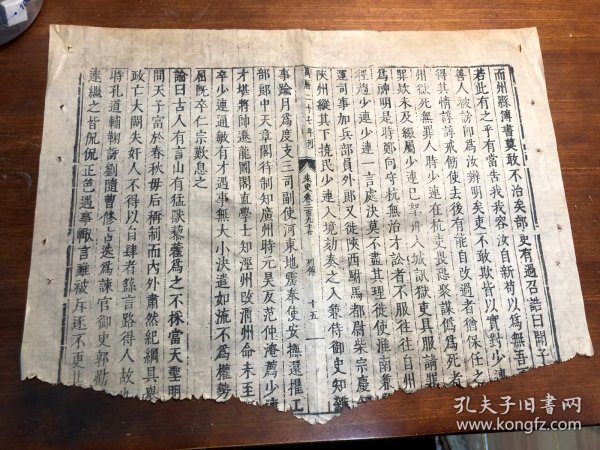 而州縣簿書莫敢不治矣部吏有過召詰曰聞子
若此有之乎有當告我我容汝自新苟以爲無吾
善人被謗即爲汝辨明矣吏不敢欺皆以實對少連
得其情諄諄戒飭使去後有能自改過者猶保任之
州獄死無罪人時少連在杭吏畏恐聚謀僞爲死者
罪狀未及綴屬少連已拏舟入城訊獄吏具服請罪
爲神明是時鄭向守杭無治才訟者不服往往自州
徑趨少連少連一言處決莫不盡其理徙
運司事加兵部員外郎又徙陝西駙馬都尉柴宗慶
陝州縱其下撓民少連入境劾奏之入兼侍御史知雜
事踰月爲度支三司副使河東地震奉使安撫還擢工
部郎中天章閣待制知廣州時元昊反范仲淹薦少連
才堪將帥遷龍圖閣直學士知涇州改渭州命未至
卒少連通敏有才遇事無大小決遣如流不爲權勢
屈既卒仁宗歎息之
論曰古人有言山有猛獸藜藿爲之不採當天聖明
間天子富於春秋母后稱制而內外肅然紀綱具舉
政亡大闕失奸人不得以自肆者繇言路得人故
時孔道輔鞠詠劉隨曹修古迭爲諫官御史郭勸
連繼之皆侃侃正色遇事輒言雖被斥逐不更
宋史卷二百九十七
列傳
十五
孔夫子旧書网
www.kongfz.com